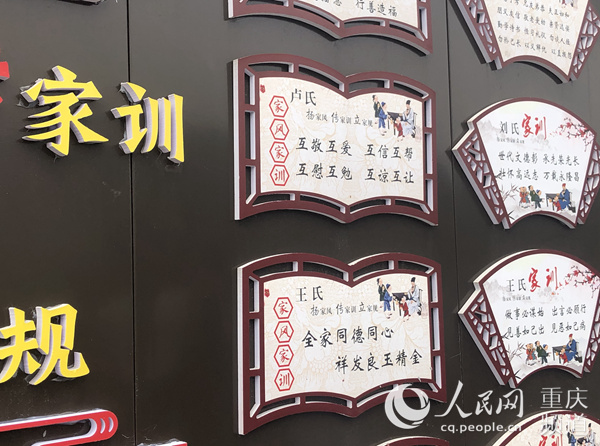 家训
规
行善造福
卢氏
扬家风 传家训 立家规
家风家训
互敬互爱 互信互帮
互慰互勉 互谅互让
王氏
扬家风 传家训 立家规
家风家训
全家同德同心
祥发良玉精金
刘氏家训
世代文德彰 承先荣先长
壮怀高远志 万载永隆昌
王氏家训
做事必谋始 出言必顾行
见善如己出 见恶如己病
人民网
cq.people.cn
重庆
频道